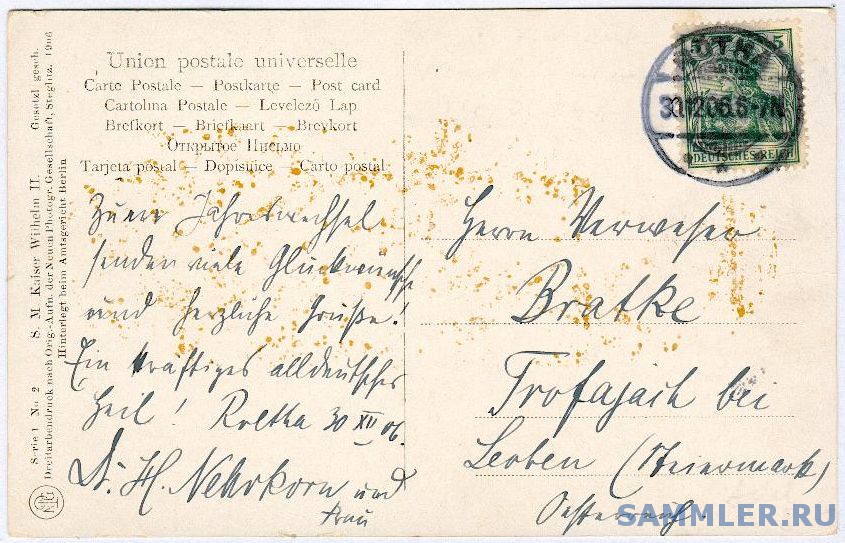 Union postale universelle
Carte Postale — Postkarte — Post card
Cartolina Postale — Levelező Lap
Brefkort — Briefkaart — Brevkort
Открытое Письмо
Tarjeta postal — Dopisnice — Carto postal
Zum Jahreswechsel
senden viele Glückwünsche
und herzliche Grüße!
Ein kräftiges alldeutsches
Heil! Roetha 30 XII 06.
Dr. H. Nehrkorn und
Frau
Herrn Verweser
Bratke
Trofajach bei
Leoben (Steiermark)
Oesterreich.
5 5
RÖTHA
30.12.06.6-7N.
DEUTSCHES REICH
Serie 1 No. 2 S. M. Kaiser Wilhelm II. Gesetzl. gesch.
Dreifarbendruck nach Orig.-Aufn. der Neuen Photogr. Gesellschaft, Steglitz. 1906
Hinterlegt beim Amtsgericht Berlin
SAMMLER.RU